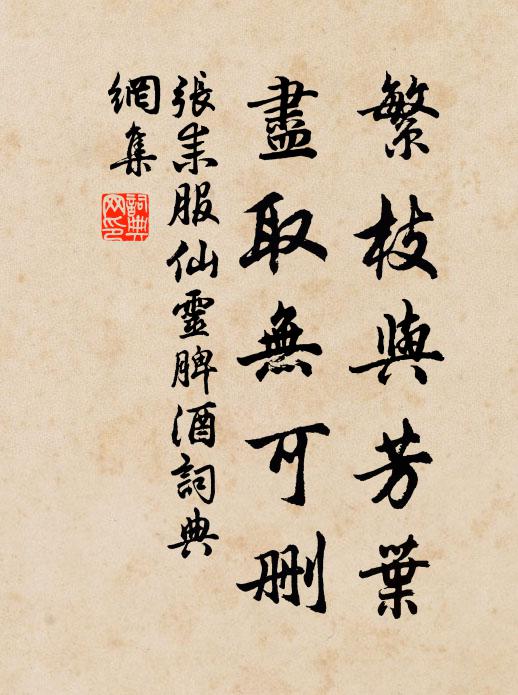 繁枝與芳葉
盡取無可删
張耒服仙靈脾酒詞典
網集
詞典
网印